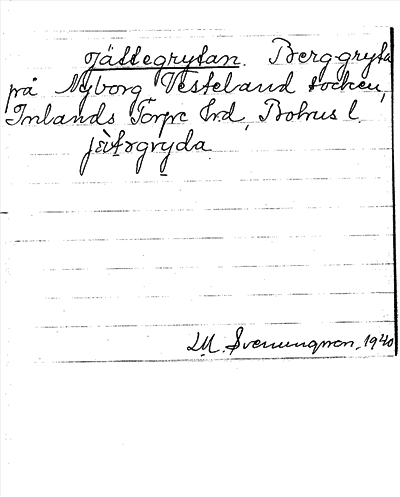 Jättegrytan. Berggryta
på Nyborg Västerland socken,
Inlands Torpe hrd, Bohus l.
jät̠ərgryda
L.M. Svenungsson, 1940